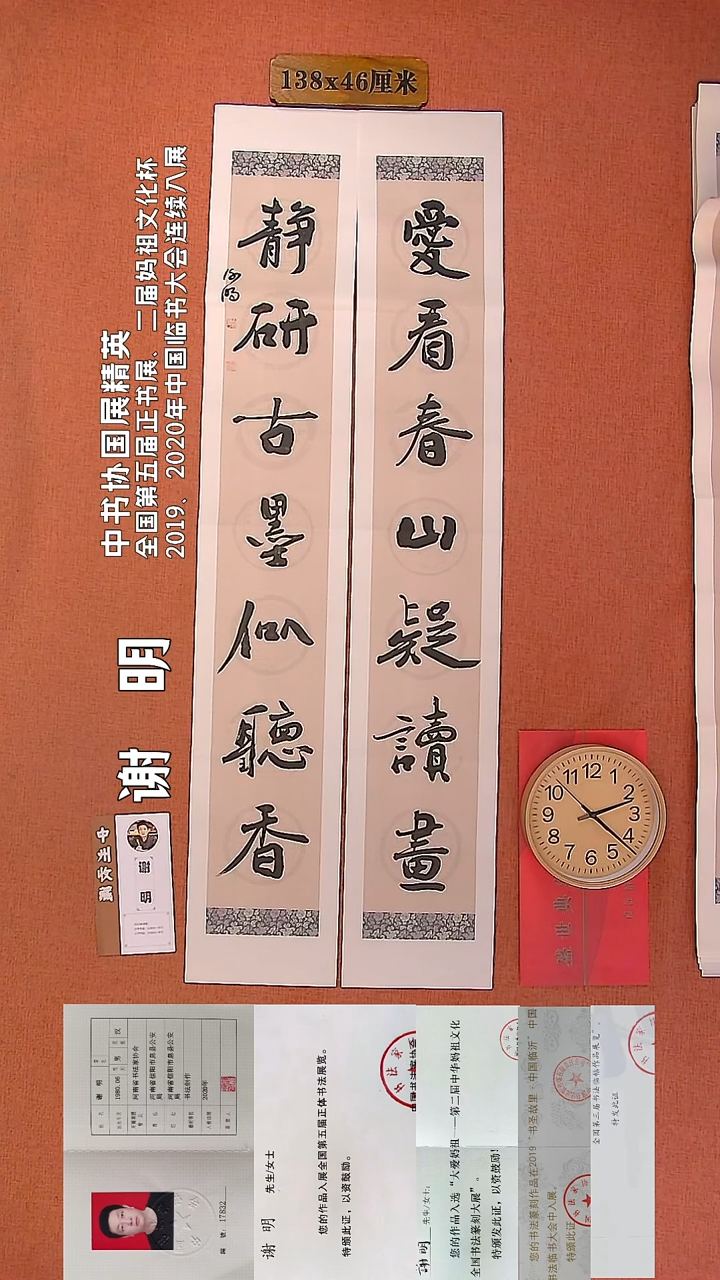 138x46厘米
愛看春山疑讀畫
静研古墨似聽香
谢明
中书协国展精英
全国第五届正书展、二届妈祖文化杯
2019、2020年中国临书大会连续入展
谢 明
12
1
2
3
4
5
6
7
8
9
10
11
谢 明
1980.06
男
汉
河南省书法家协会
河南省信阳市息县公安局
河南省信阳市息县公安局
书法创作
2020年
编 号: 17832
谢 明 先生/女士
您的作品入展全国第五届正体书法展览。
特颁此证，以资鼓励。
謝明 先生/女士:
您的作品入选“大爱妈祖——第二届中华妈祖文化
全国书法篆刻大展”。
特颁发此证，以资鼓励!
您的书法篆刻作品在2019“书圣故里·中国临沂”中国
书法临书大会中入展。
特颁此证
全国第三届书法临帖作品展览”。
特发此证